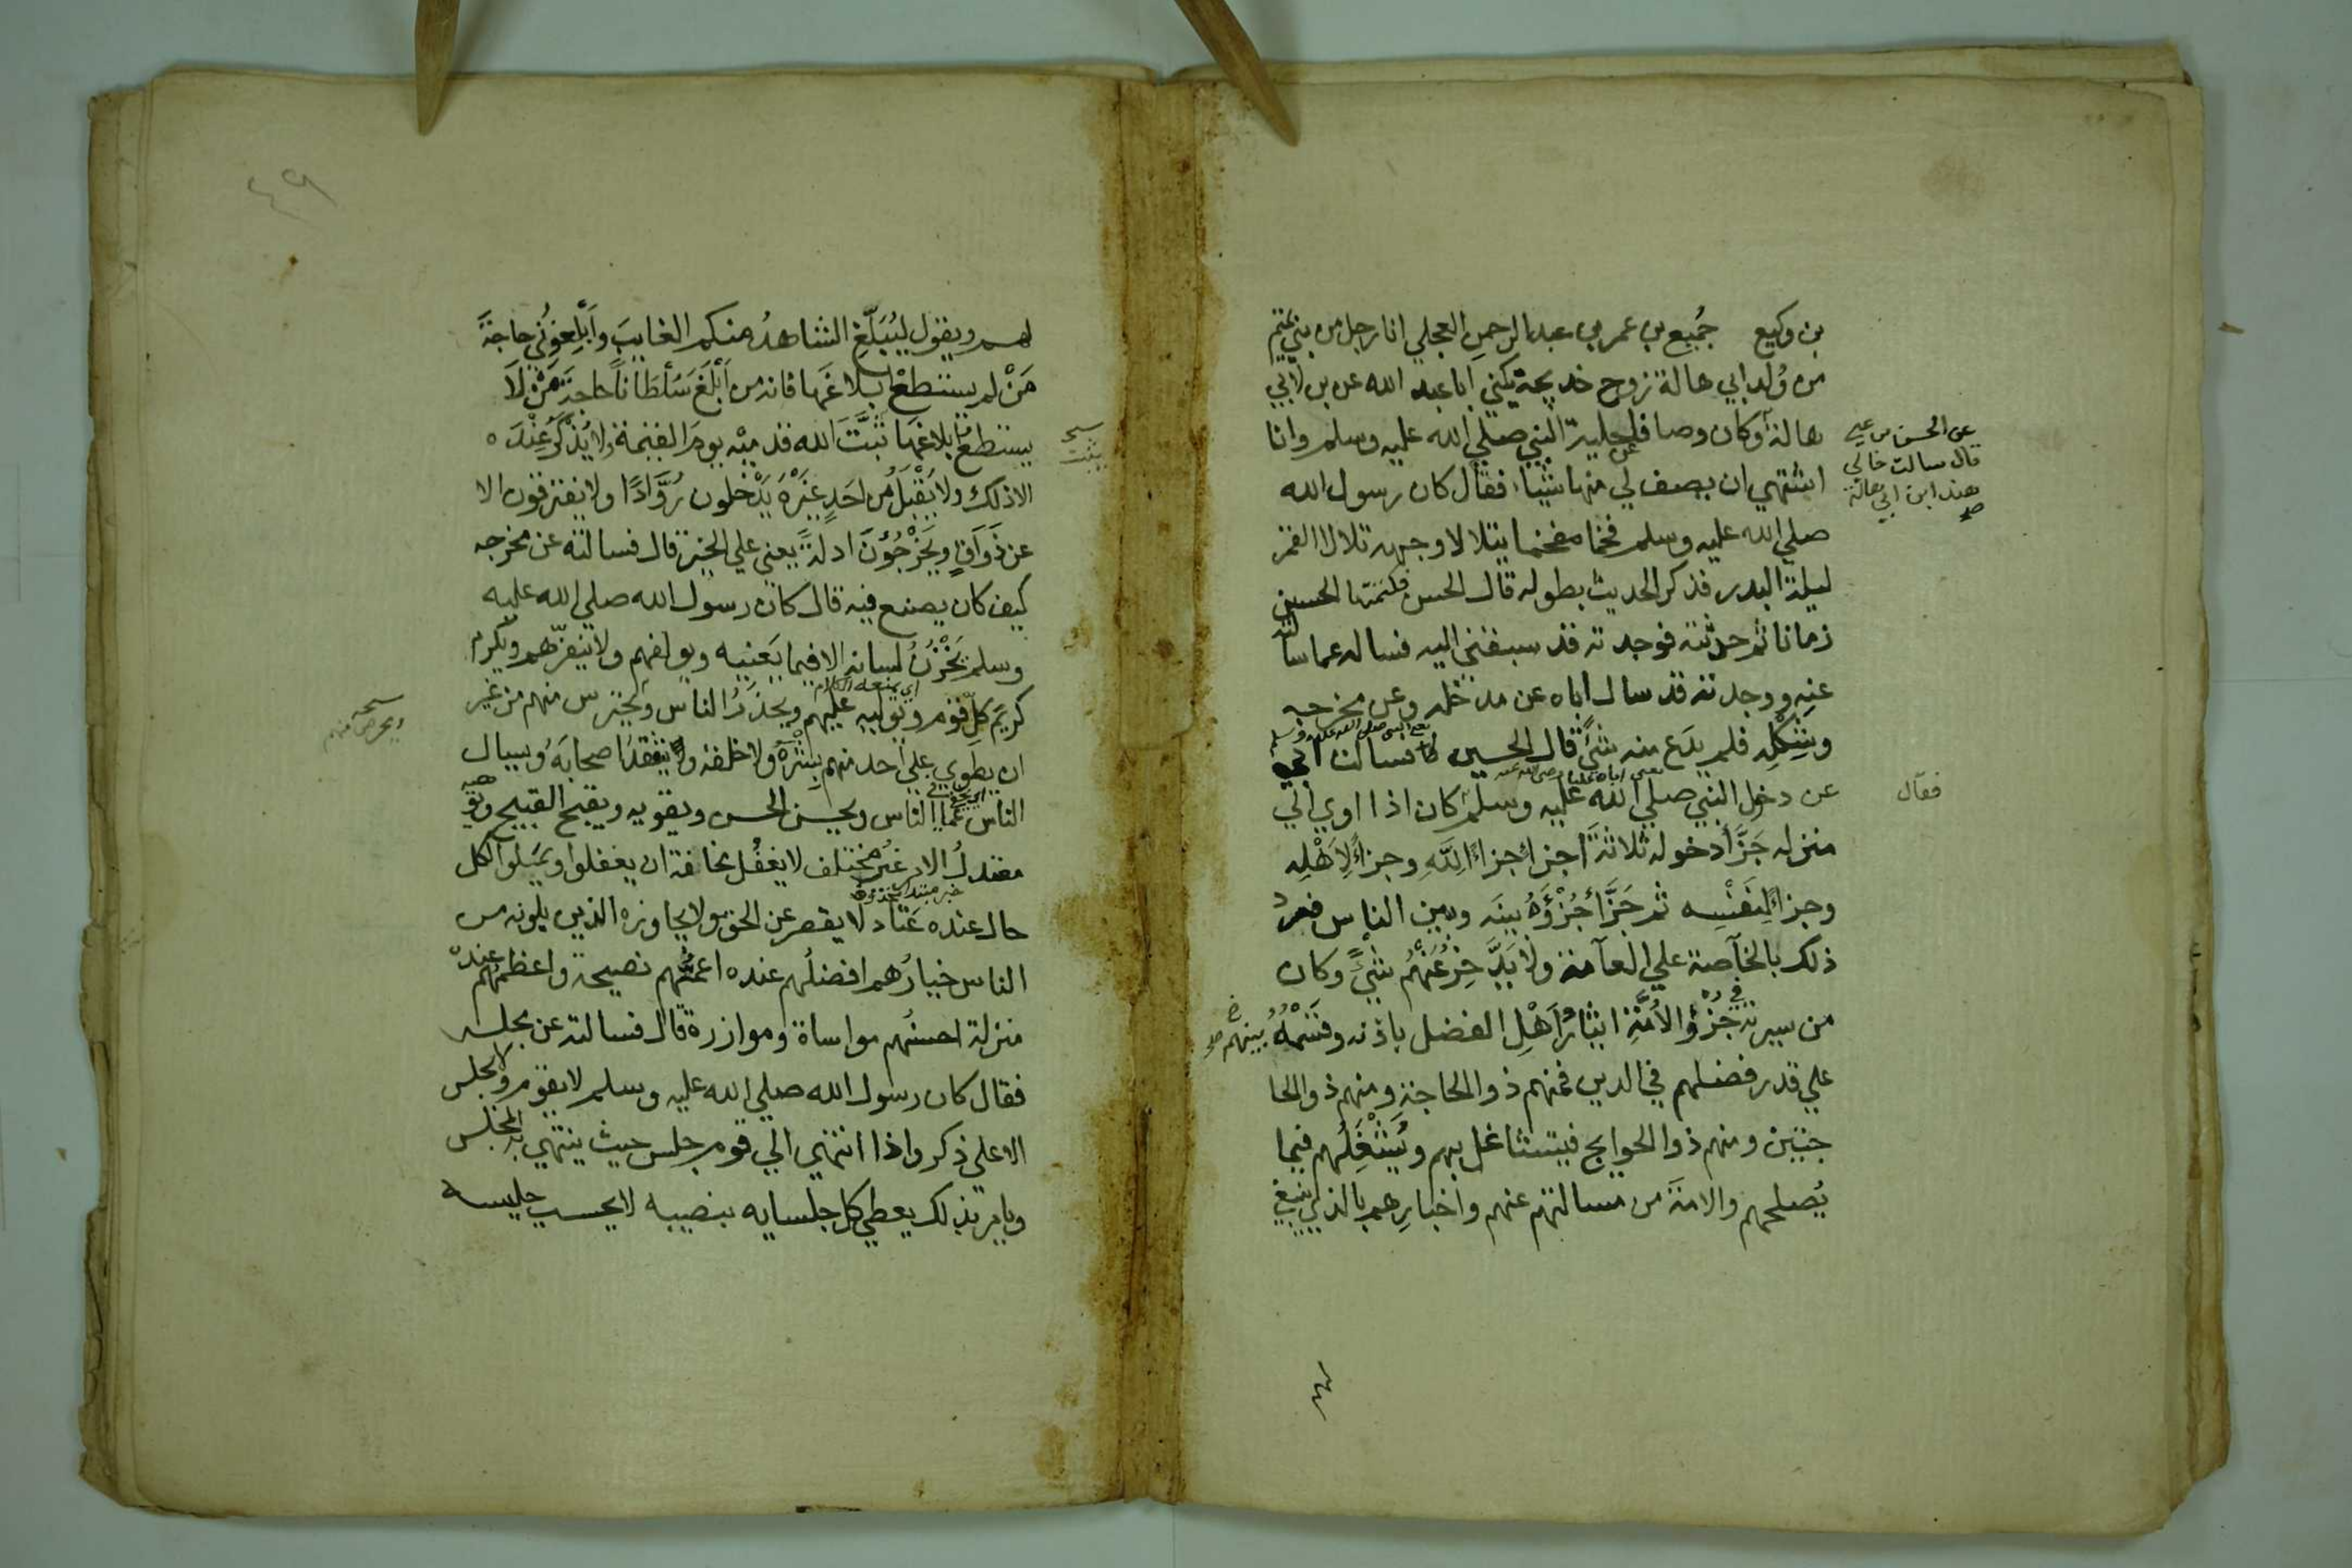 بن وكيع جُمَيع بن عمر بن عبد الرحمن العجلي انا رجل من بني تميم
من وُلد ابي هالة زوج خديجة يكني ابا عبد الله عن بن لابي
هالة وكان وصافا حلية النبي صلي الله عليه وسلم وانا
عن
عن الحسن بن علي
قال سالت خالي
هند ابن ابي هالة
صح
اشتهي ان يصف لي منها شيئا فقال كان رسول الله
صلي الله عليه وسلم فخما مفخما يتلالا وجهه تلالا القمر
ليلة البدر فذكر الحديث بطوله قال الحسن فكتمتها الحسين
زمانا ثم حدثته فوجدته قد سبقني اليه فساله عما سا
لته
عنه ووجدته قد سال اباه عن مدخله وعن مخرجه
يعني النبي صلي الله عليه وسلم
وشَكْلِه فلم يدَع منه شيءً قال الحسين فسالت ابي
يعني اباه عليا رضي الله عنه
عن دخول النبي صلي الله عليه وسلم كان اذا اوي الي
فقال
منزله جَزَّأ دخوله ثلاثةَ اجزاءٍ جزاءً لِلَّهِ وجزاءً لِاَهْلِه
وجزاءً لِنَفْسِه ثم جَزَّأ جُزْؤَهُ بينَه وبين الناس فيرد
ذلك بالخآصة علي العآمة ولا يَدَّخِرُ عَنْهُم شيءً وكان
من سيرته في جُزْؤِ الاُمَّةِ ايثارُ اَهْلِ الفضل باذنه وقَسْمُهُ
بينهم صح
علي قدر فضلهم في الدين فمنهم ذو الحاجة ومنهم ذو الحا
جتين ومنهم ذو الحوايج فيتشاغل بهم ويُشْغِلُهم فيما
يُصلحهم والامةَ من مسالتهم عنهم واخبارِهم بالذي ينبغي
لهم ويقول لِيُبَلِّغِ الشاهدُ منكم الغايبَ واَبْلِغوني حاجةَ
مَنْ لم يستطعْ ابلاغَها فانه من اَبْلَغَ سُلطَاناً حاجةَ مَنْ لَا
يستطع ابلاغها ثَبَّتَ الله قدميْه يومَ القيمة ولا يُذْكَرُ عِنْدَه
يثبت
الا ذلك ولا يُقْبَلُ من احَدٍ غيرَهُ يَدْخلون رُوَّادًا ولا يفترقون الا
عن ذَوَاقٍ ويَخْرُجُوْنَ ادلةً يعني علي الخير قال فسالته عن مخرجه
كيف كان يصنع فيه قال كان رسول الله صلي الله عليه
وسلم يَخْزُنُ لسانه الا فيما يَعنيه ويولفهم ولا ينفّرهم ويكرم
اي يمنعه الكلام
كريمَ كلِّ قوْم ويوليه عليهم ويحذرُ الناس ويحترس منهم من غير
ويحرص منهم
ان يطوي علي احد منهم بِشْرَهُ ولا خلقه ويتفقدُ اصحابَه ويسال
الناسَ عَمَّا في الناس ويحسن الحسن ويقويه ويقبح القبيح ويو
هيه
معتدلُ الامر غيرُ مختلف لا يغفُل مخافة ان يغفلوا ويَميلوا لكل
خبر مبتدا محذوف
حال عنده عَتاد لا يقصر عن الحق ولا يجاوزه الذين يلونه من
الناس خيارُهم افضلُهم عنده اعمُّهم نصيحة واعظمُهم عنده
منزلة احسنُهم مواساة وموازرة قال فسالته عن مجلسه
فقال كان رسول الله صلي الله عليه وسلم لا يقوم ولا يجلس
الا علي ذكر واذا انتهي الي قوم جلس حيث ينتهي به المجلس
ويامر بذلك يعطي كل جلسايه بنصيبه لا يحسب جليسه